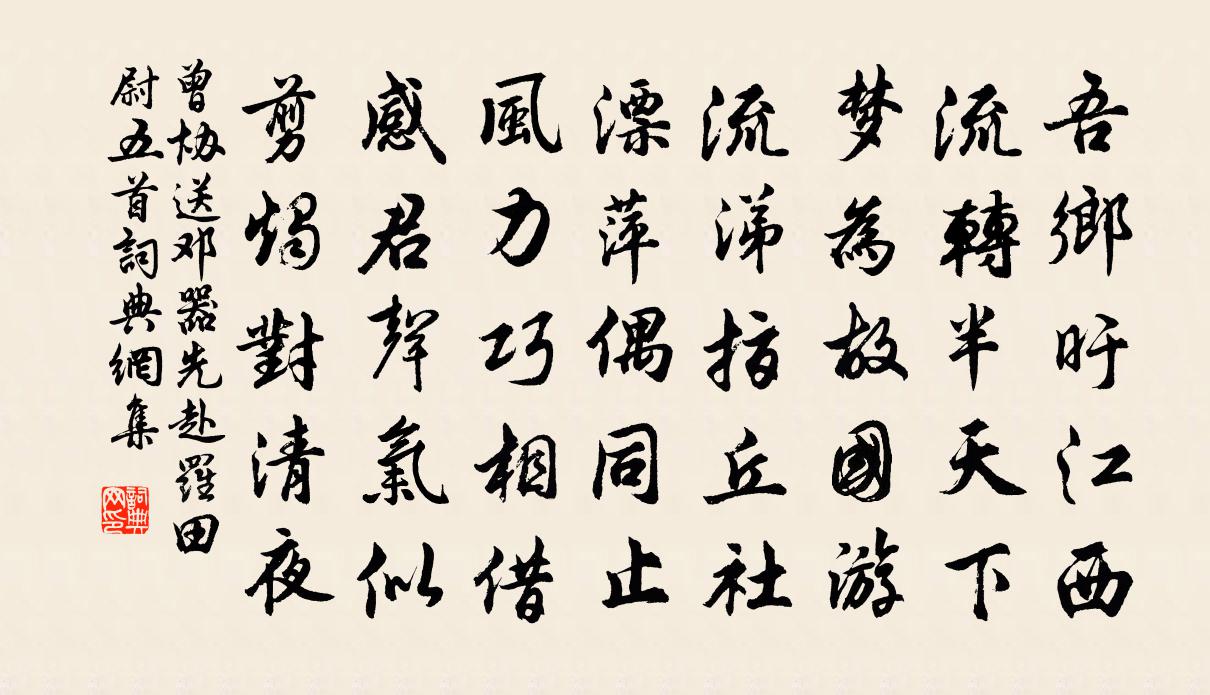 吾鄉盱江西
流轉半天下
梦為故國游
流涕指丘社
漂萍偶同止
風力巧相借
感君聲氣似
剪燭對清夜
曾協送邓器先赴羅田
尉五首詞典網集
詞典
网印